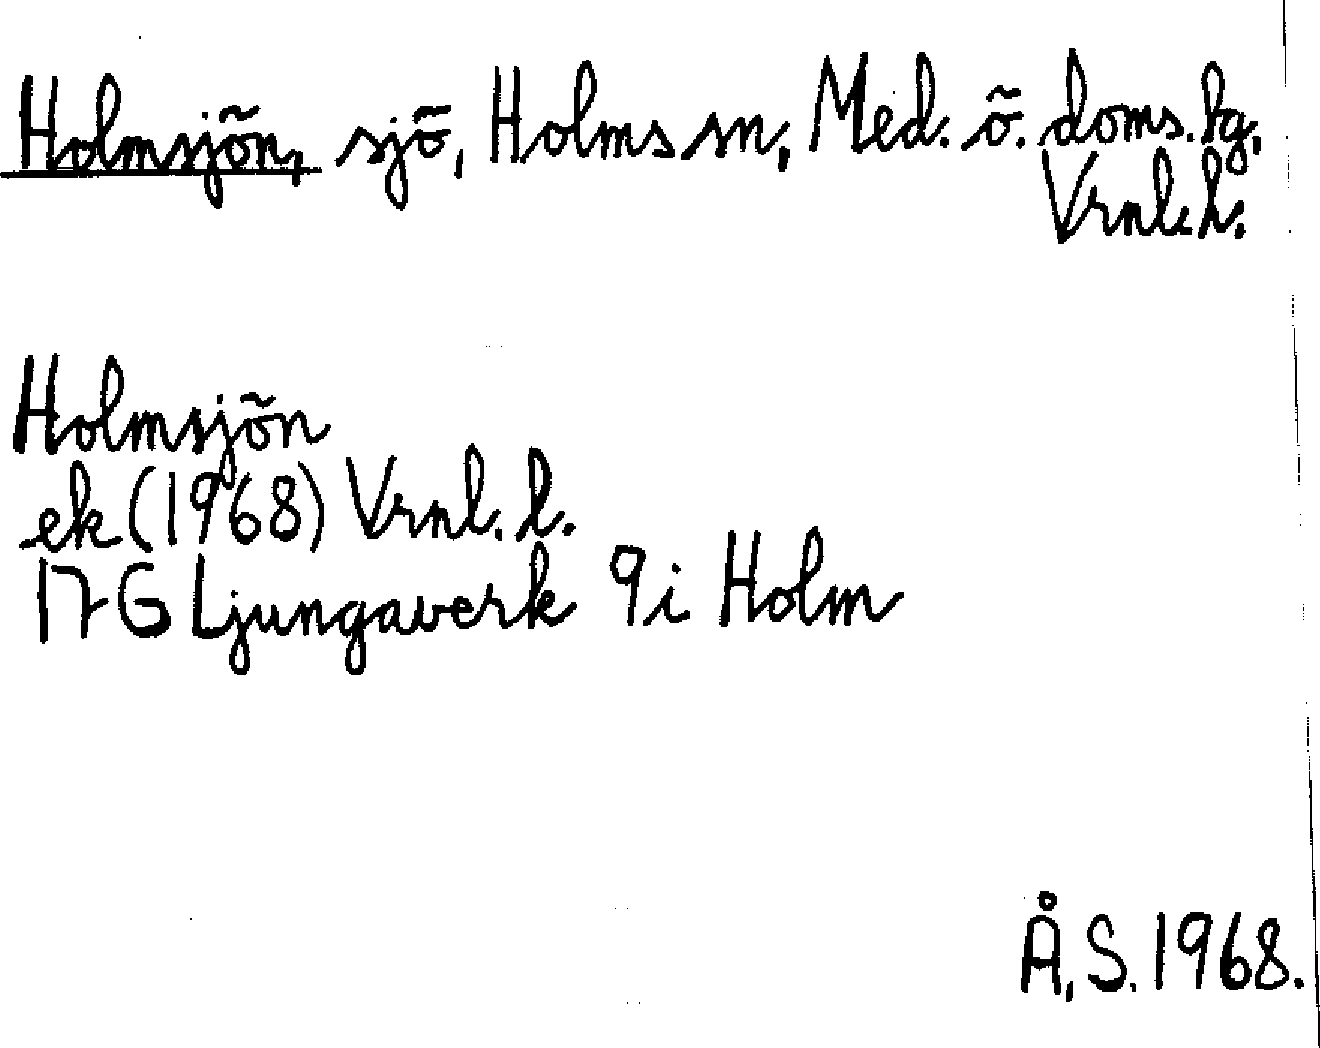 Holmsjön, sjö, Holms sn, Med. ö. doms. hg,
Vrnl. h.
Holmsjön
ek (1968) Vrnl. l.
17G Ljungaverk 9i Holm
Å, S. 1968.